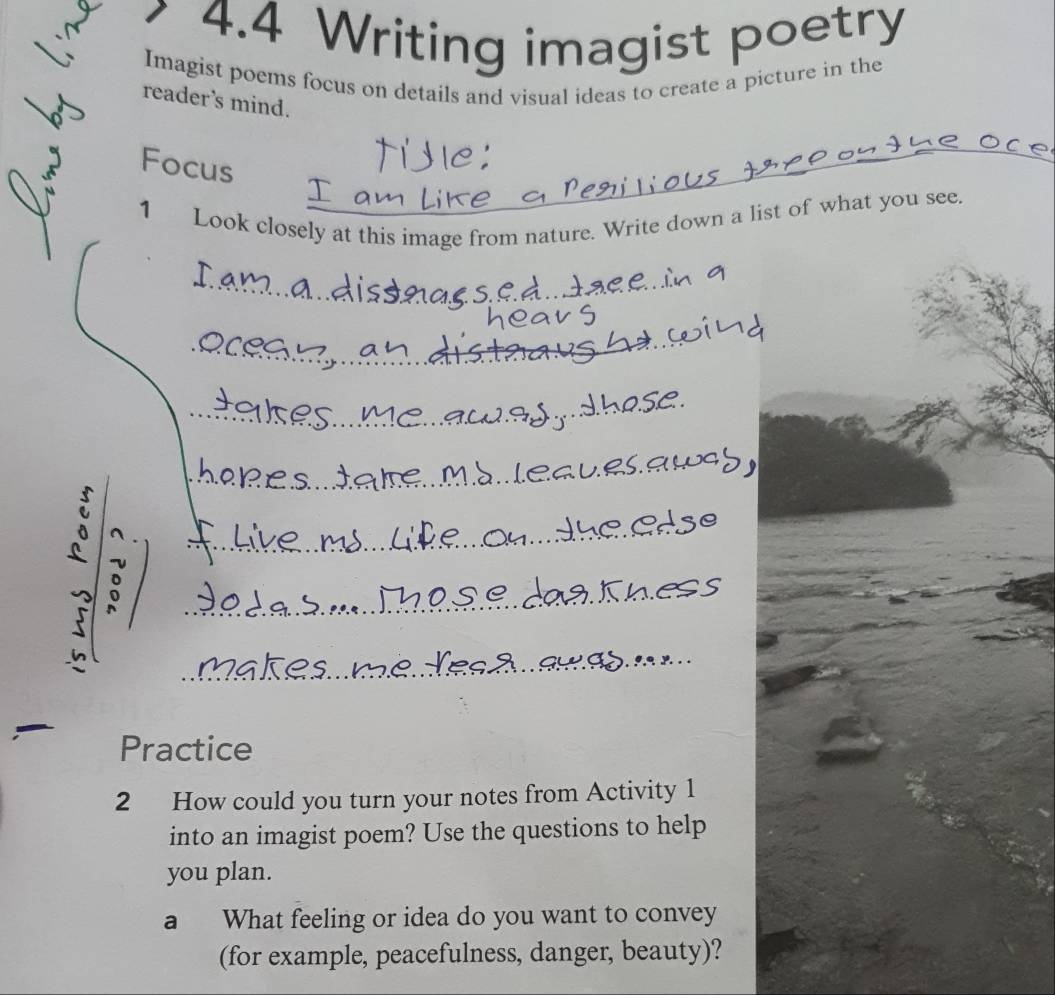 4.4 Writing imagist poetry
Imagist poems focus on details and visual ideas to create a picture in the
reader's mind.
Line by line
Title:
Focus
I am like a perilious tree on the oce
1 Look closely at this image from nature. Write down a list of what you see.
I am a distrassed tree in a
heavs
ocean, an distraught wind
takes me away, those
hopes take my leaves away,
I live my life on the edge
today... Those darkness
makes me fear away....
is my poem
good
Practice
2 How could you turn your notes from Activity 1
into an imagist poem? Use the questions to help
you plan.
a What feeling or idea do you want to convey
(for example, peacefulness, danger, beauty)?